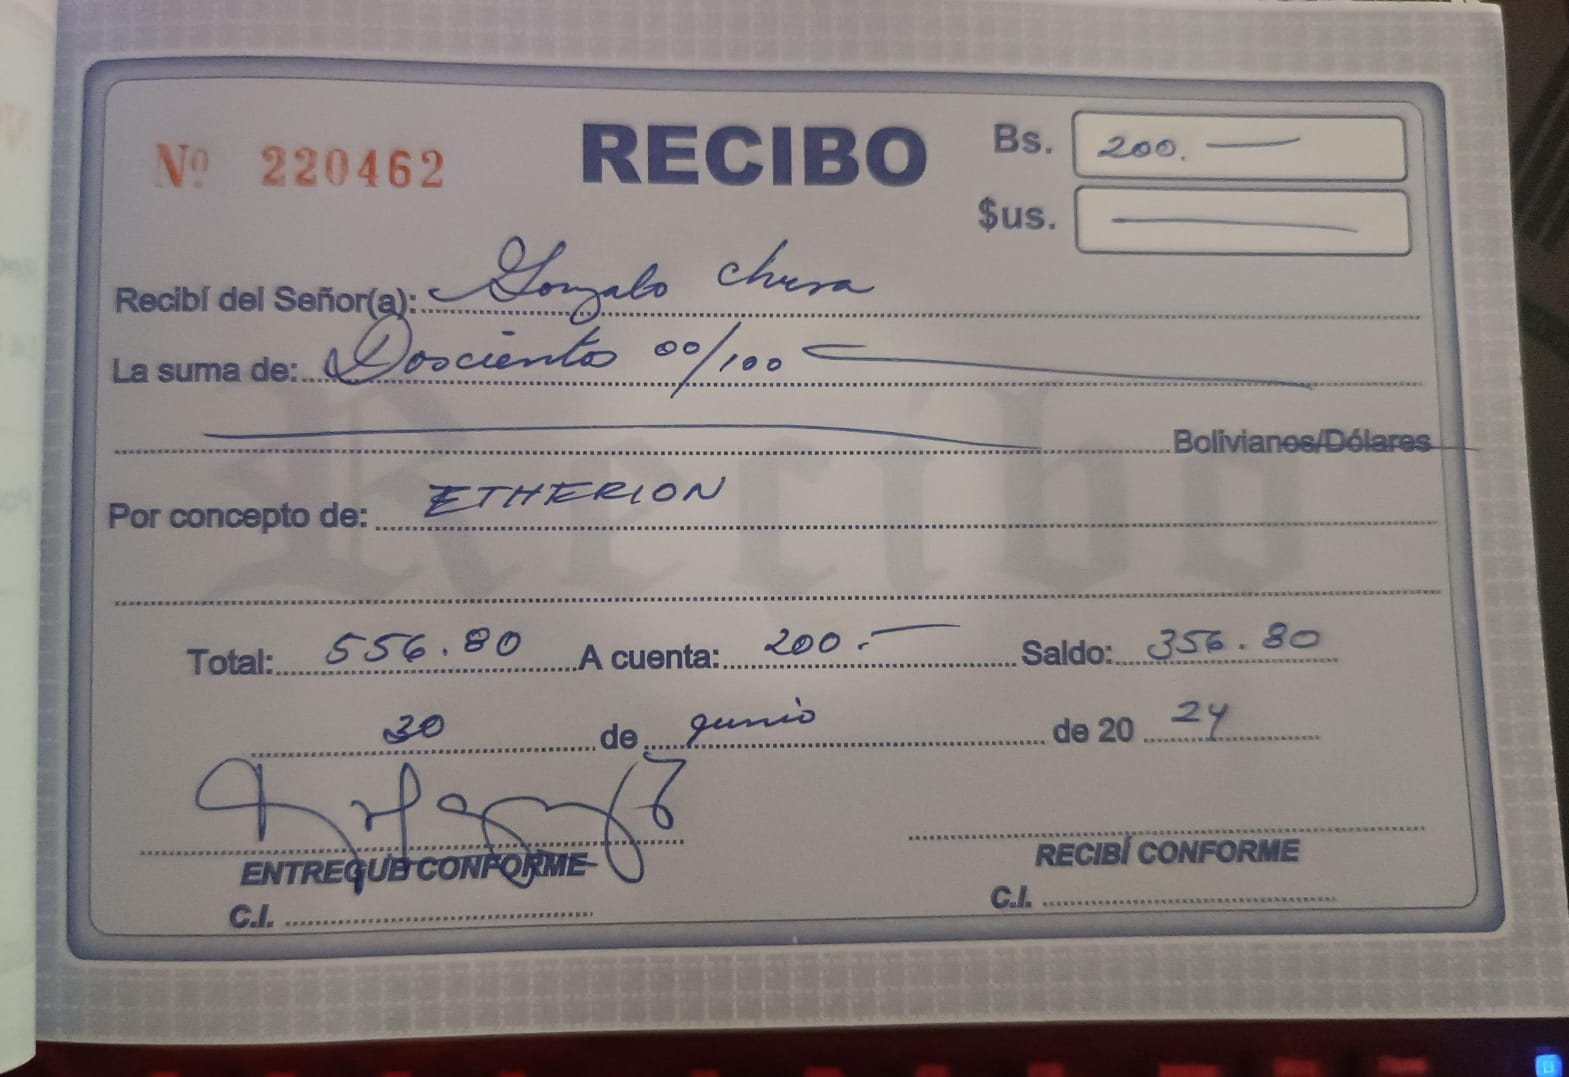 Nº 220462 RECIBO Bs. 200.
$us.
Recibí del Señor(a): Gonzalo Chura
La suma de: Doscientos 00/100
Bolivianos/Dólares
Por concepto de: ETHERION
Total: 556.80 A cuenta: 200.- Saldo: 356.80
30 de junio de 20 24
ENTREGUE CONFORME RECIBÍ CONFORME
C.I. C.I.
Recibo